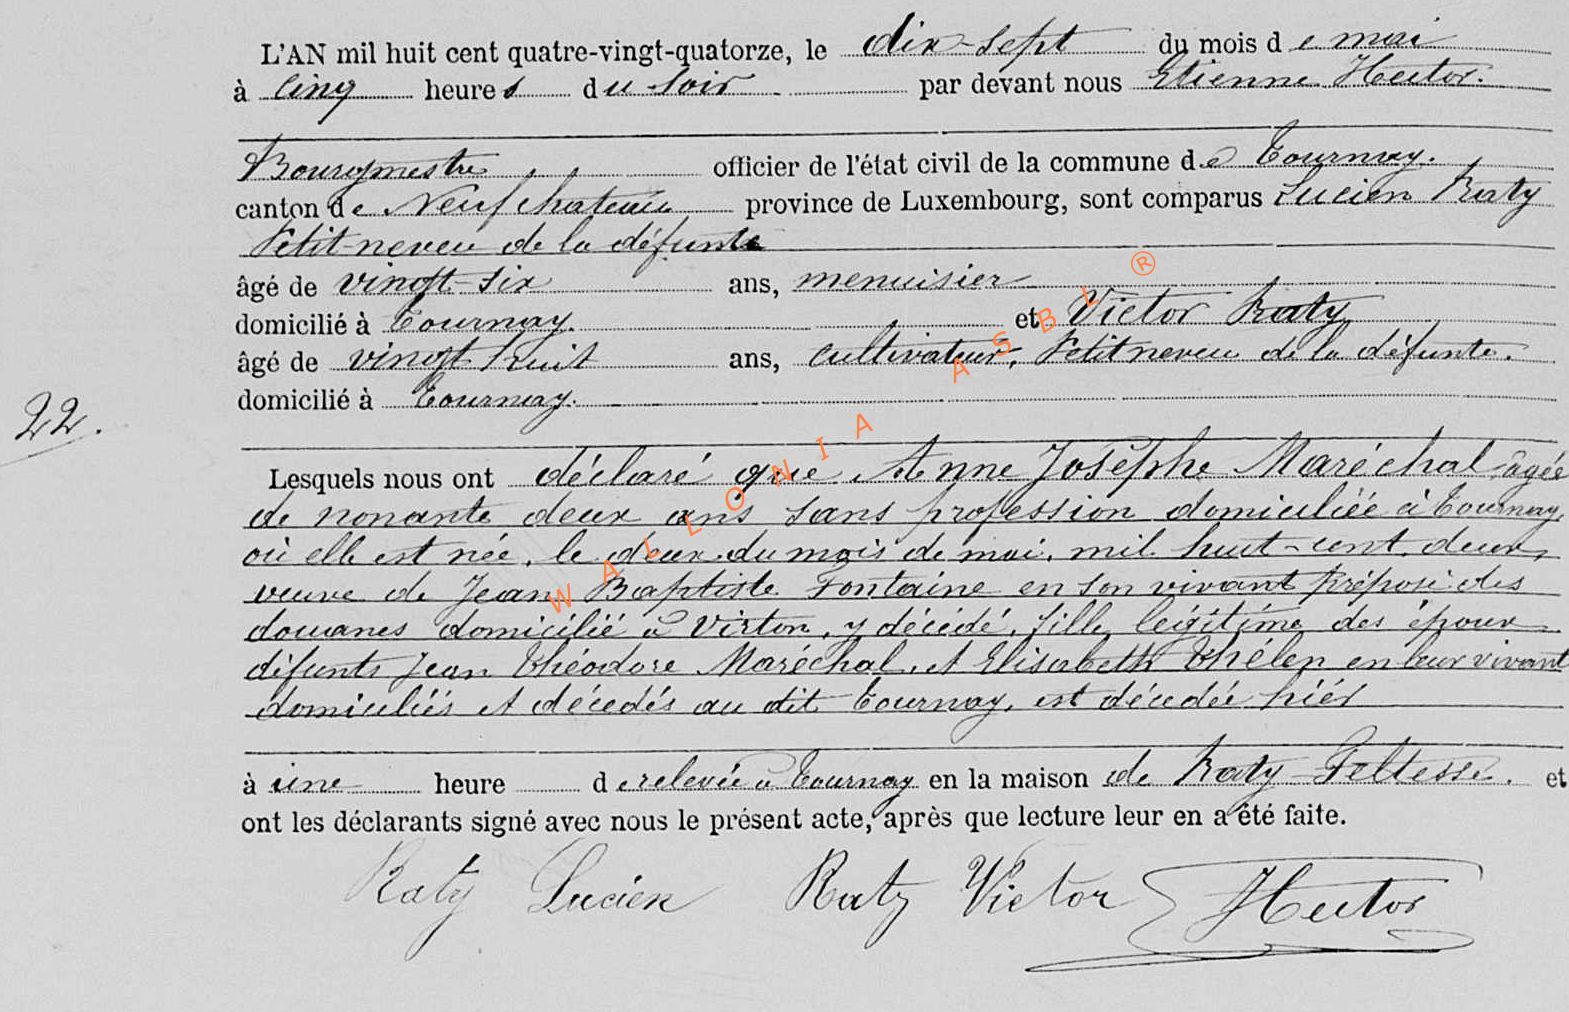 L'AN mil huit cent quatre-vingt-quatorze, le dix-sept du mois de mai
à cinq heures du soir par devant nous Etienne Hector.
Bourgmestre officier de l'état civil de la commune de Tournay.
canton de Neufchateau province de Luxembourg, sont comparus Lucien Raty
Petit-neveu de la défunte
âgé de vingt-six ans, menuisier
domicilié à Tournay. et Victor Raty
âgé de vingt huit ans, cultivateur, Petit neveu de la défunte.
domicilié à Tournay.
22.
Lesquels nous ont déclaré que Anne Joséphe Maréchal âgée
de nonante deux ans sans profession domiciliée à Tournay,
où elle est née, le deux du mois de mai, mil huit-cent deux,
veuve de Jean Baptiste Fontaine en son vivant préposé des
douanes domicilié à Virton, y décédé, fille légitime des époux
défunts Jean Théodore Maréchal, et Elisabeth Thélen en leur vivant
domiciliés et décédés au dit Tournay, est décédée hier
à une heure de relevée à Tournay en la maison de Raty-Feltesse. et
ont les déclarants signé avec nous le présent acte, après que lecture leur en a été faite.
Raty Lucien Raty Victor Hector
WALLONIA ASBL ®